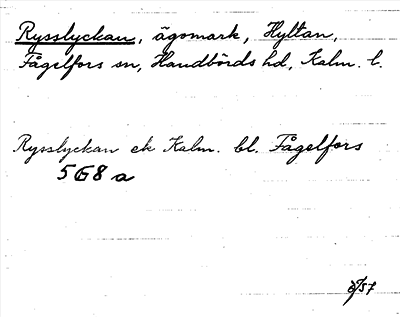 Rysslyckan, ägomark, Hyltan,
Fågelfors sn, Handbörds hd, Kalm. l.
Rysslyckan ek Kalm. bl. Fågelfors
5 G8 a
/57